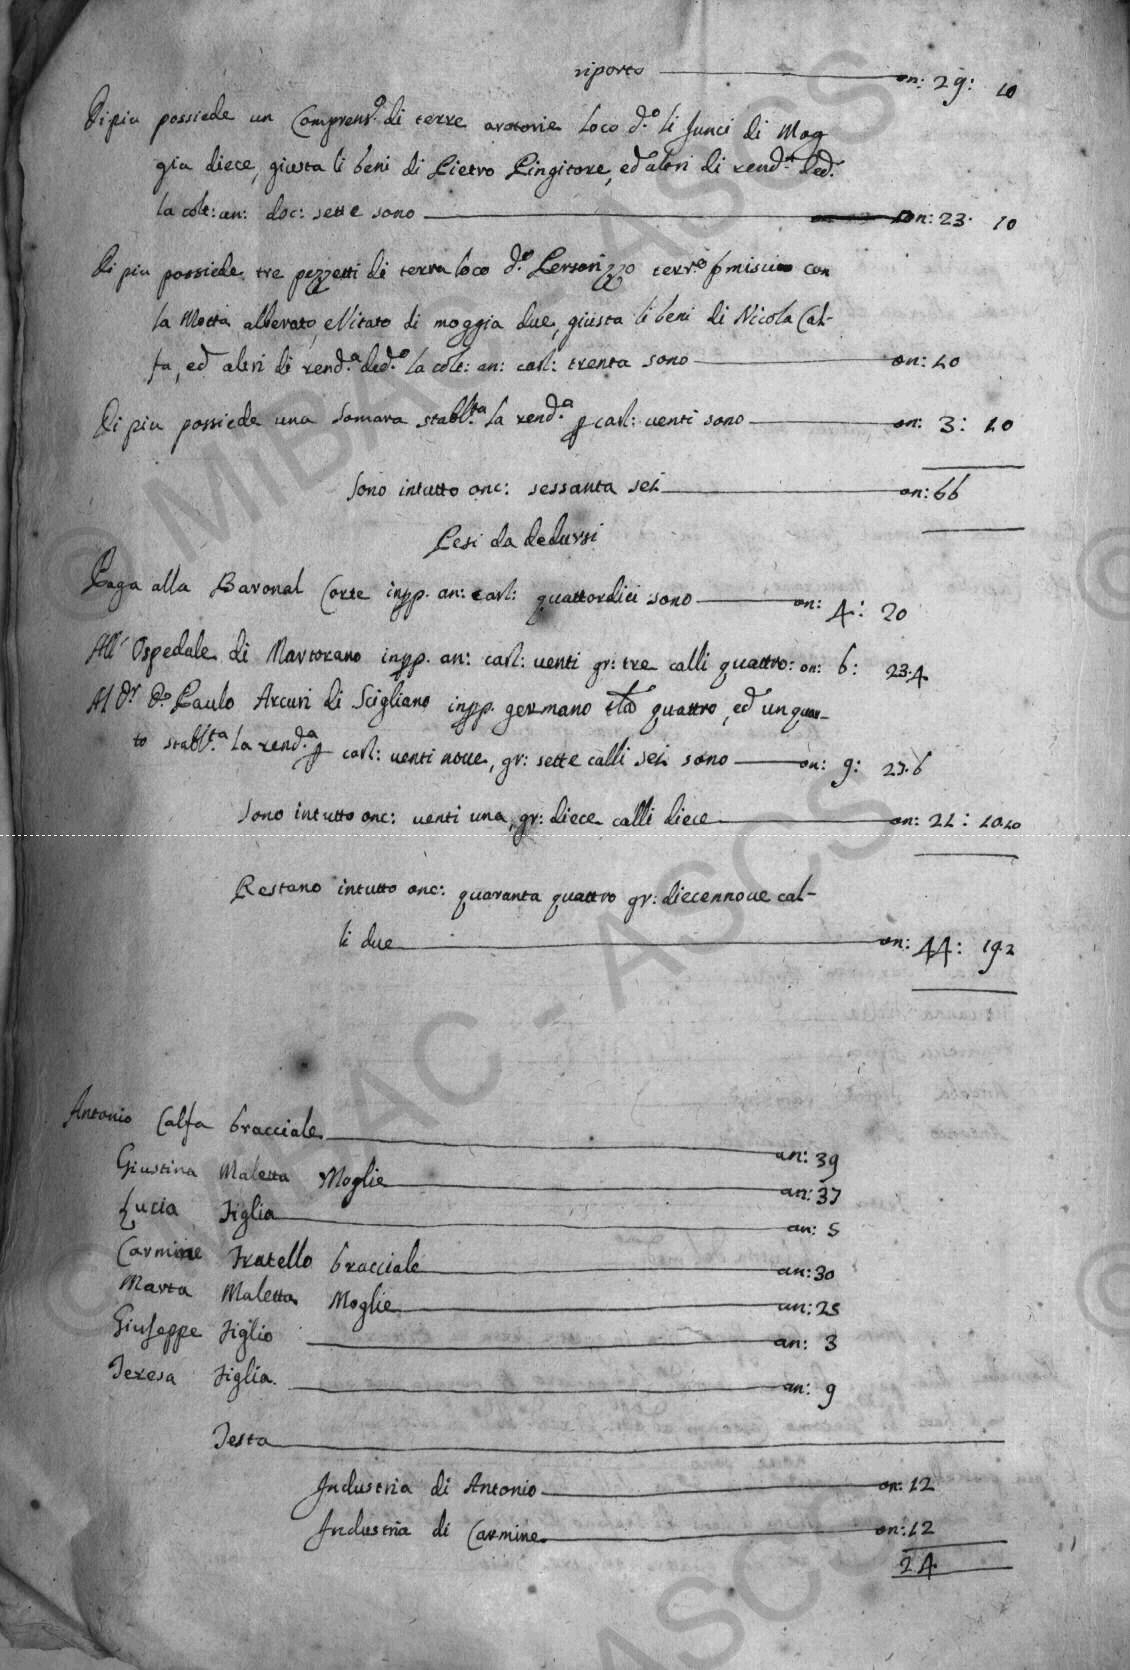 riporto on: 29: 10
Di piu possiede un Comprens.º di terre aratorie loco d.º li Junci di Mog
gia diece, giusta li beni di Pietro Pingitore, ed altri di rend.ª ded.ª
la colt: an: doc: sette sono on: 23. 10
Di piu possiede tre pezzetti di terra loco d.º terr.º pmiscuo con
la Motta alberato, e Vitato di moggia due, giusta li beni di Nicola Cal-
fa, ed altri di rend.ª ded.º la colt: an: carl: trenta sono on: 10
Di piu possiede una Somara stabil.ta la rend.ª p carl: venti sono on: 3: 10
Sono intutto onc: sessanta sei on: 66
Pesi da dedursi
Paga alla Baronal Corte in pp. an: carl: quattordici sono on: 4: 20
All' Ospedale di Martorano in pp. an: carl: venti gr: tre calli quattro: on: 6: 23.4
Al D.r D. Paulo Arcuri di Scigliano in pp. germano quattro, ed un quar-
to stabil.ta la rend.ª p carl: venti nove, gr: sette calli sei sono on: 9: 27.6
Sono intutto onc: venti una, gr: diece calli diece on: 21: 10.10
Restano intutto onc: quaranta quattro gr: diecennove cal-
li due on: 44: 19.2
Antonio Calfa bracciale an: 39
Giustina Maletta Moglie an: 37
Lucia Figlia an: 5
Carmine Fratello bracciale an: 30
Marta Maletta Moglie an: 25
Giuseppe Figlio an: 3
Teresa Figlia an: 9
Testa
Industria di Antonio on: 12
Industria di Carmine on: 12
24
© MIBAC - ASCS
© MIBAC - ASCS
ASCS